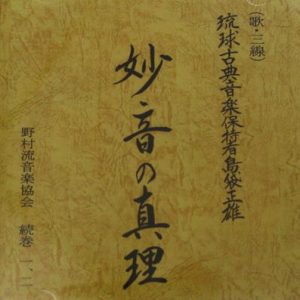 (歌・三線)
琉球古典音楽保持者島袋正雄
妙音の真理
野村流音楽協会 続巻 一、二